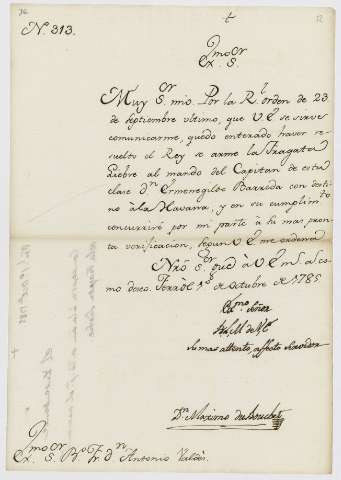 N. 313.
Exmo. Sor.
Muy Sor. mio. Por la Rl. orden de 23
de Septiembre ultimo, que V.E. se sirve
comunicarme, quedo enterado haver re-
suelto el Rey se arme la Fragata
Liebre al mando del Capitan de esta
clase Dn. Ermenegildo Barreda con desti-
no à la Havana, y en su cumplimto.
concurriré por mi parte à su mas pron-
ta verificacion, segun V.E. me ordena.
Nrô Sor. gue. à V.E. ms. as. co-
mo deseo. Ferrol 1º de Octubre de 1785
Exmo. Señor
B.L.M. de V.E.
Su mas attento, affecto Servidor
Dn. Maximo du Bouchet
Exmo. Sor. Bo. Fr. Dn. Antonio Valdés.